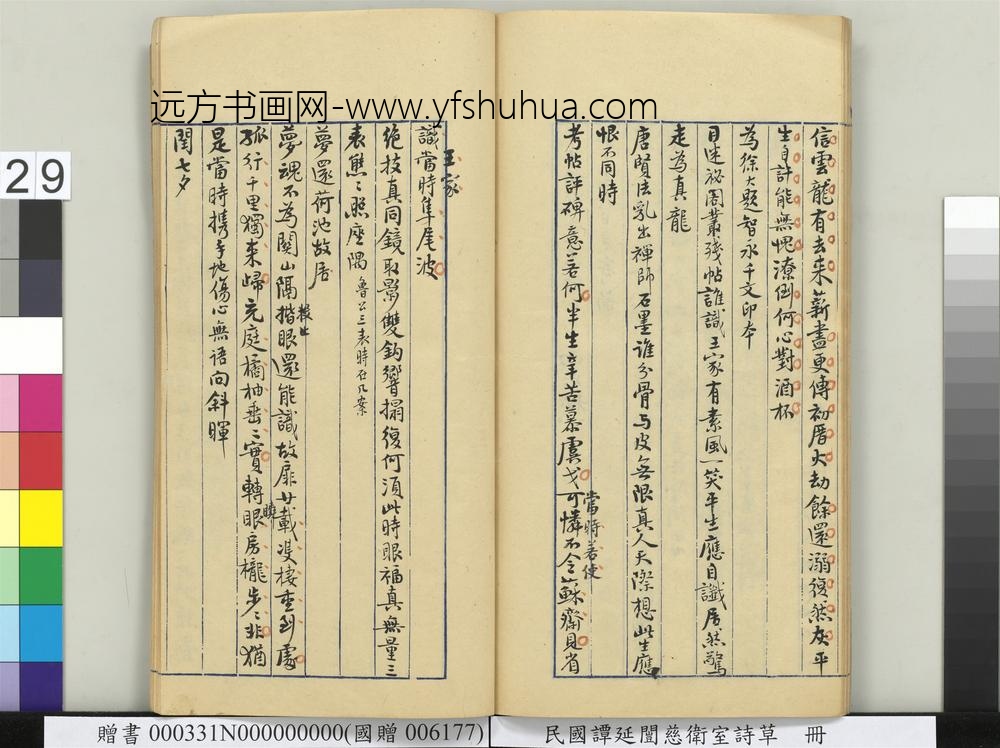 远方书画网-www.yfshuhua.com
信雲龍有去來薪盡更傳初厝火劫餘還溺復然灰平
生自計能無愧潦倒何心對酒杯
為徐大題智永千文印本
目迷祕閣叢殘帖誰識王家有素風一笑平生應自讖居然驚
走為真龍
唐賢法乳出禪師石墨誰分骨与皮無限真人天際想此生應
恨不同時
考帖評碑意若何半生辛苦慕虞戈可憐不令蘇齋見省
當時若使
識當時隼尾波
王家
絶技真同鏡取影雙鈎響搨復何須此時眼福真無量三
表熊〻照座隅 魯公三表時在几案
夢還荷池故居
夢魂不為關山隔揩眼還能識故扉廿載凄棲重到處
孤行千里獨來歸元庭橘柚垂〻實轉眼房櫳步〻非猶
是當時攜手地傷心無語向斜暉
閏七夕
29
贈書 000331N000000000(國贈 006177)
民國譚延闓慈衛室詩草 冊